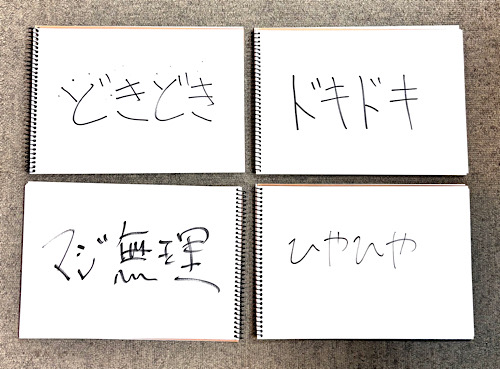 どきどき
ドキドキ
マジ無理
ひやひや